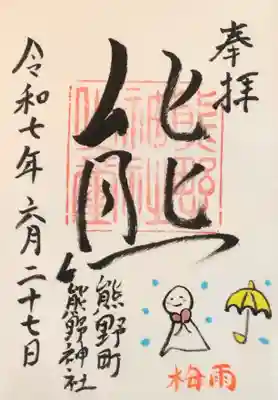 奉拝
熊
熊野
神社
熊野町
熊野神社
令和七年六月二十七日
梅雨